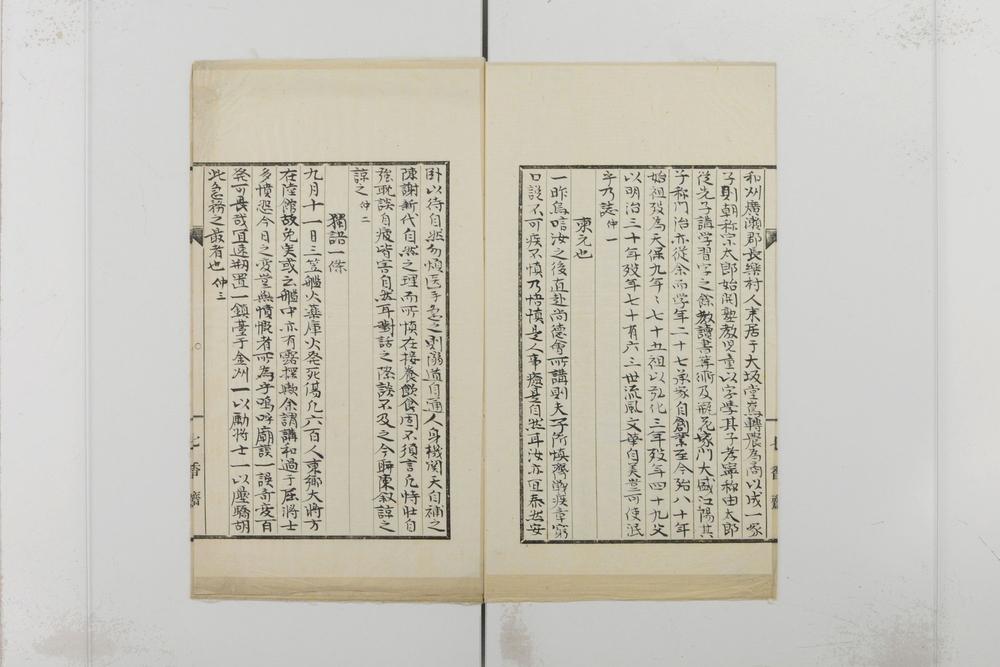 和州廣瀬郡長樂村人来居于大坂堂嶌轉農為商以成一家
子則朝称宗太郎始開塾教児童以字学其子孝寧称由太郎
従先子講学習字之餘教讀書筭術及甁花家門大盛江陽其
子称門治亦従余而学年二十七承家自創業至今殆八十年
始祖歿為天保九年〻七十五祖以弘化三年歿年四十九父
以明治三十年歿年七十有六三世流風文筆自美豈可使泯
乎乃誌 仲一
東元也
一昨烏唁汝之後直赴尚德會所講則夫子所慎齊戰疾章窮
口説不可疾不慎乃悟慎是人事癒是自然耳汝亦宜泰然安
臥以待自然勿煩医手急之則陽道自通人身機関天自補之
陳謝新代自然之理而所慎在接養飲食固不須言凢恃壮自
強耽談自瘦皆害自然耳對話之際談不及之今聊陳叙諒之
諒之 仲二
獨語一條
九月十一日三笠艦火薬庫火発死傷凢六百人東郷大将方
在陸館故免矣或云艦中亦有露探歟余謂講和過于屈将士
多憤怨今日之変豈無憤恨者所為乎嗚呼廟謨一誤奇変百
発可畏哉宜速㓨置一鎮臺于金州一以勵将士一以壓驕胡
此急務之最者也 仲三
七香齋
七香齋